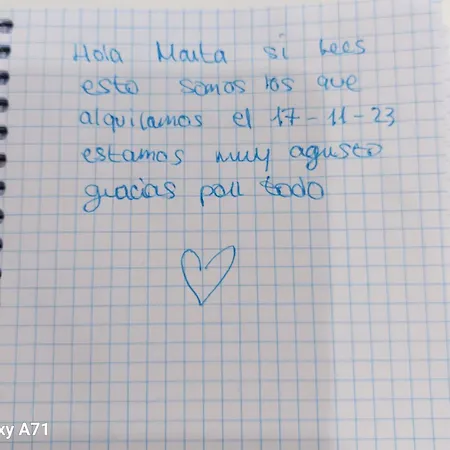 Hola Marta si Lees
esto somos los que
alquilamos el 17-11-23
estamos muy agusto
gracias por todo
xy A71